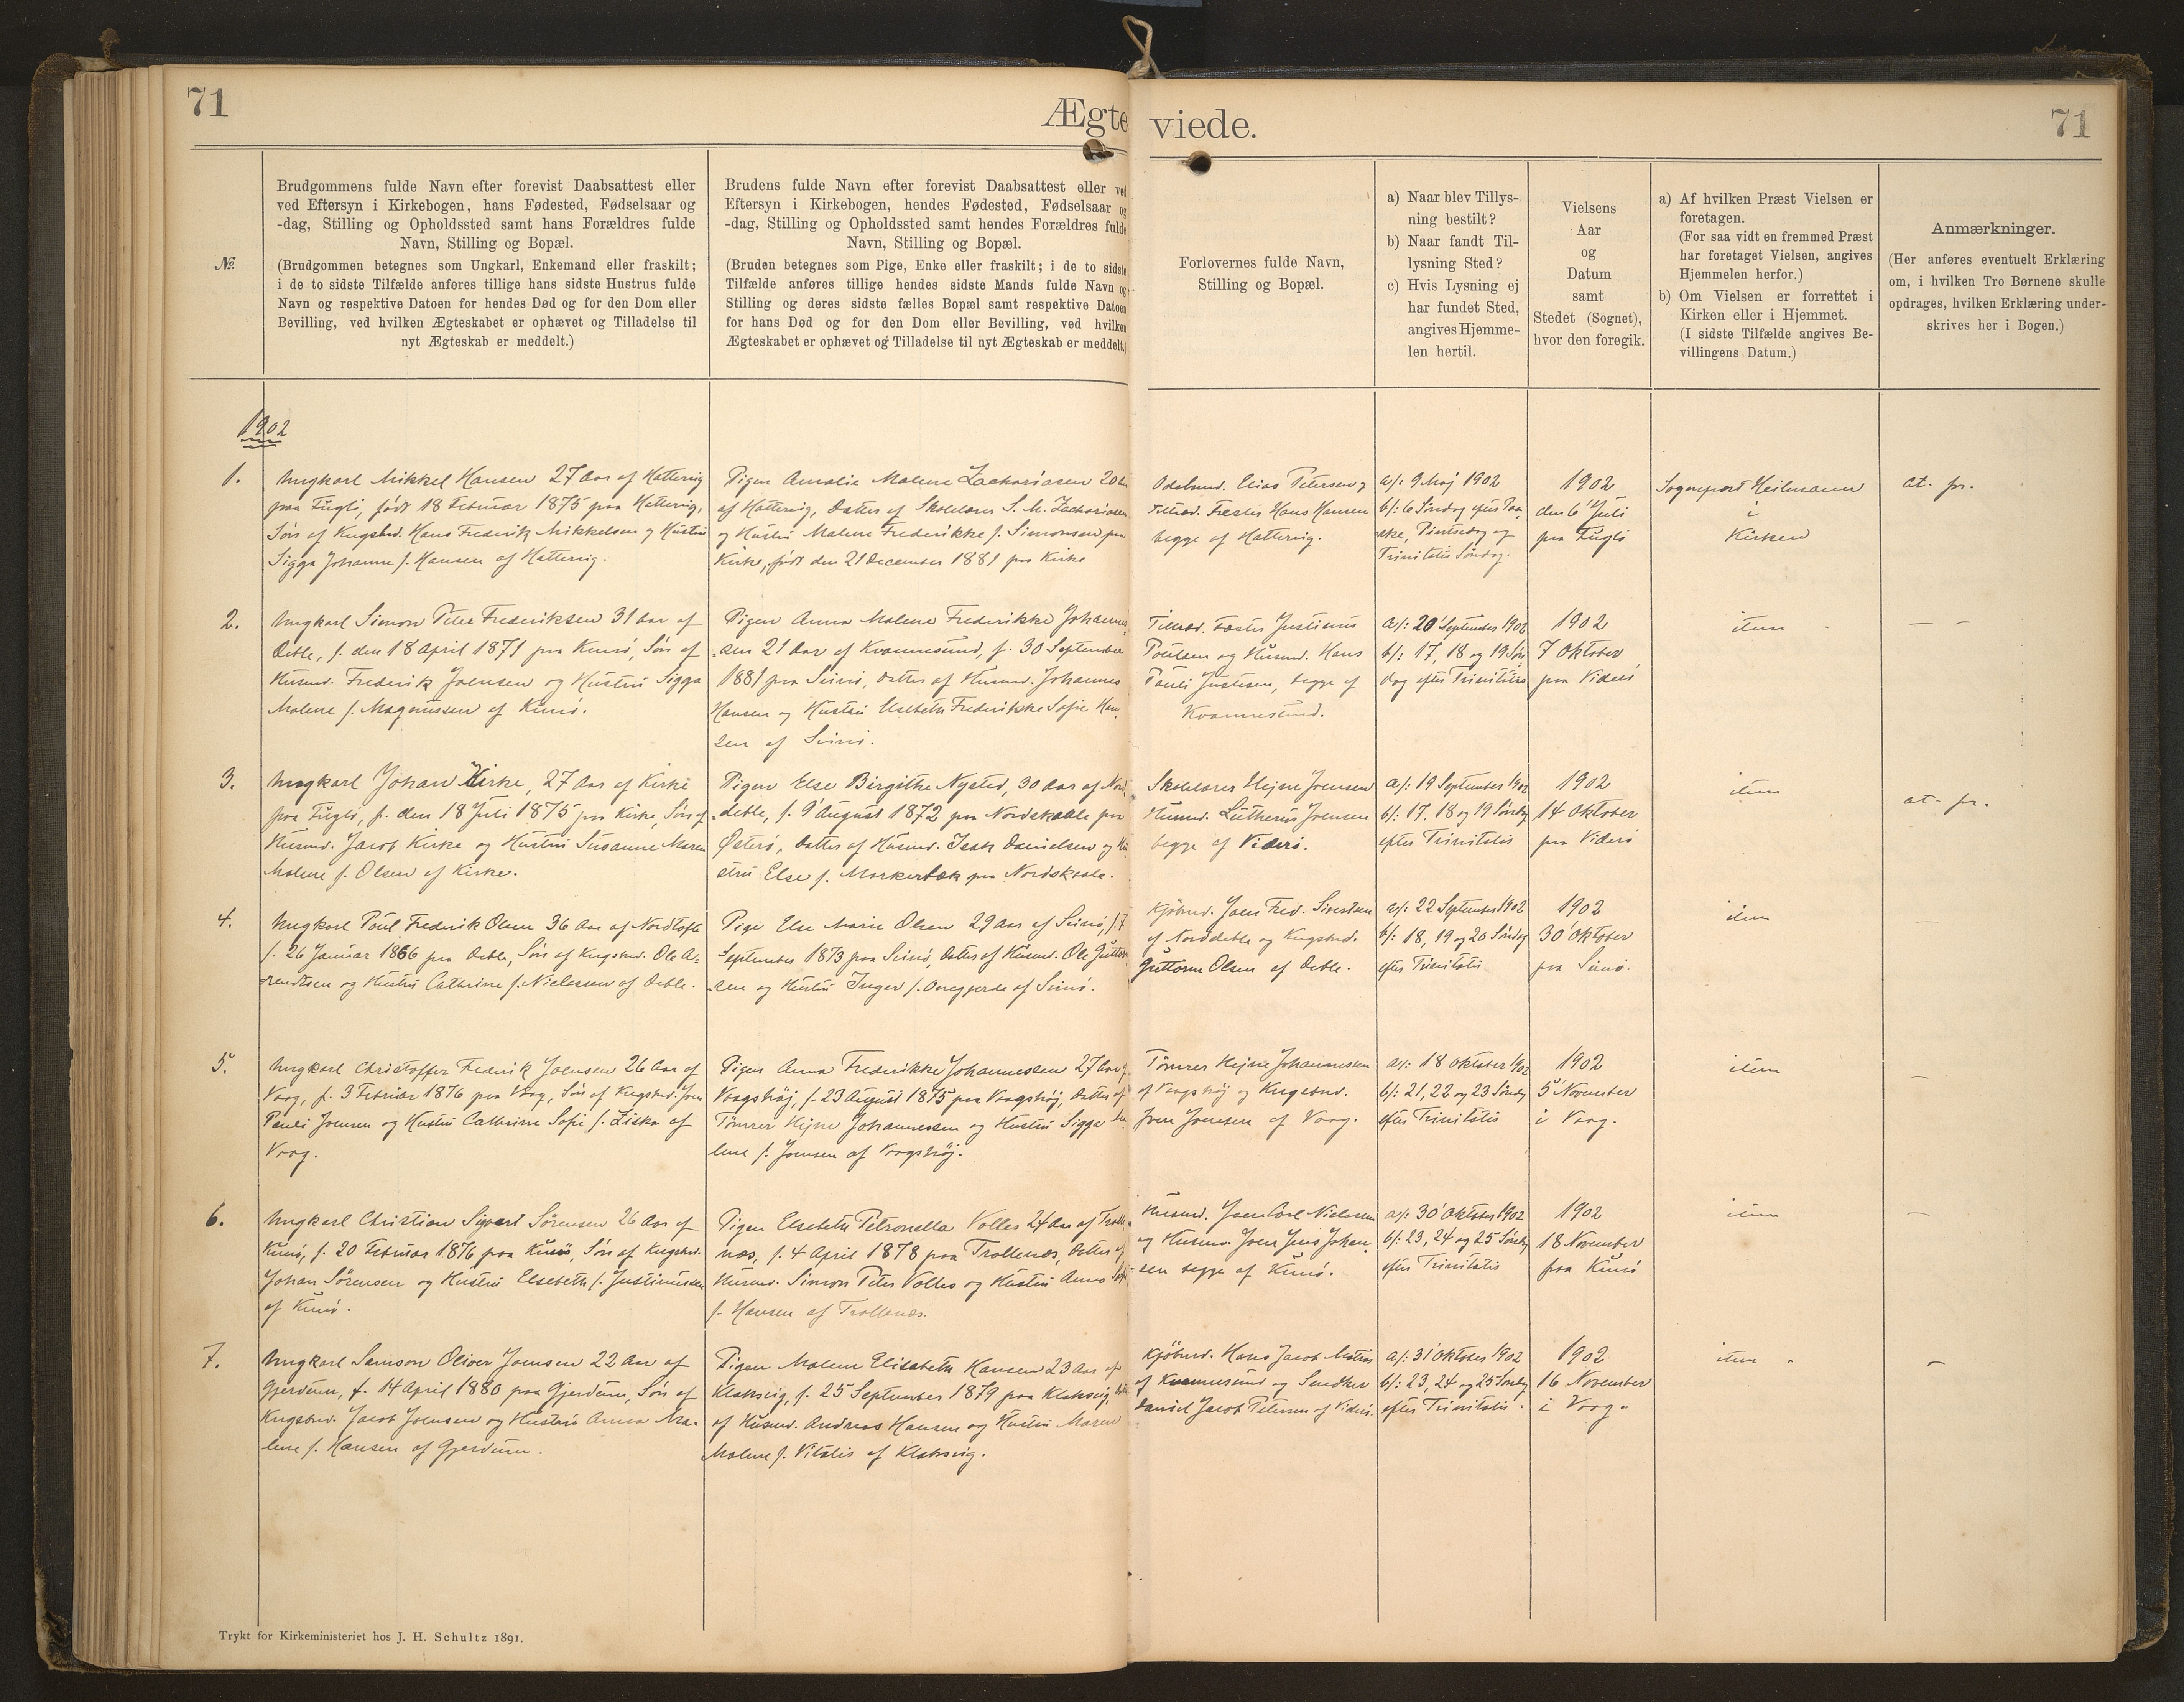 71
Ægteviede.
71
№
Brudgommens fulde Navn efter forevist Daabsattest eller
ved Eftersyn i Kirkebogen, hans Fødested, Fødselsaar og
-dag, Stilling og Opholdssted samt hans Forældres fulde
Navn, Stilling og Bopæl.
(Brudgommen betegnes som Ungkarl, Enkemand eller fraskilt;
i de to sidste Tilfælde anføres tillige hans sidste Hustrus fulde
Navn og respektive Datoen for hendes Død og for den Dom eller
Bevilling, ved hvilken Ægteskabet er ophævet og Tilladelse til
nyt Ægteskab er meddelt.)
Brudens fulde Navn efter forevist Daabsattest eller ved
Eftersyn i Kirkebogen, hendes Fødested, Fødselsaar og
-dag, Stilling og Opholdssted samt hendes Forældres fulde
Navn, Stilling og Bopæl.
(Bruden betegnes som Pige, Enke eller fraskilt; i de to sidste
Tilfælde anføres tillige hendes sidste Mands fulde Navn og
Stilling og deres sidste fælles Bopæl samt respektive Datoen
for hans Død og for den Dom eller Bevilling, ved hvilken
Ægteskabet er ophævet og Tilladelse til nyt Ægteskab er meddelt.)
Forlovernes fulde Navn,
Stilling og Bopæl.
a) Naar blev Tillys-
ning bestilt?
b) Naar fandt Til-
lysning Sted?
c) Hvis Lysning ej
har fundet Sted,
angives Hjemme-
len hertil.
Vielsens
Aar
og
Datum
samt
Stedet (Sognet),
hvor den foregik.
a) Af hvilken Præst Vielsen er
foretagen.
(For saa vidt en fremmed Præst
har foretaget Vielsen, angives
Hjemmelen herfor.)
b) Om Vielsen er forrettet i
Kirken eller i Hjemmet.
(I sidste Tilfælde angives Be-
villingens Datum.)
Anmærkninger.
(Her anføres eventuelt Erklæring
om, i hvilken Tro Børnene skulle
opdrages, hvilken Erklæring under-
skrives her i Bogen.)
1902
1.
Ungkarl Mikkel Hansen 27 Aar af Hattervig
paa Fuglö, född 18 Februar 1875 paa Hattervig,
Sön af Kngsbmd. Hans Frederik Mikkelsen og Hustru
Sigga Johanne f. Hansen af Hattervig.
Pigen Amalie Malene Zachariasen 20
af Hattervig, Datter af Skolelærer S. M. Zachariasen
og Hustru Malene Frederikke f. Simonsen paa
Kirke, född den 21 December 1881 paa Kirke
Odelsmd. Elias Petersen og
Hans Hansen
begge af Hattervig.
a/: 9 Maj 1902
b/: 6 Söndag efter Paa-
ske, Pintsedag og
Trinitatis Söndag.
1902
den 6' Juli
paa Fuglö
Sognepræst Heilmann
i
Kirken
at. pr.
2.
Ungkarl Simon Peter Frederiksen 31 Aar af
Deble, f. den 18 April 1871 paa Kunö, Sön af
Husmd. Frederik Joensen og Hustru Sigga
Malene f. Magnussen af Kunö.
Pigen Anna Malene Frederikke Johanne-
sen 21 Aar af Kvannesund, f. 30 September
1881 paa Svinö, Datter af Husmd. Johannes
Hansen og Hustru Elsebeth Frederikke Sofie Han-
sen af Svinö.
Justinus
Poulsen og Husmd. Hans
Pauli Justesen, begge af
Kvannesund.
a/: 20 September 1902
b/: 17, 18 og 19 Sön-
dag efter Trinitatis
1902
7 Oktober
paa Viderö
item
— —
3.
Ungkarl Johan Kirke, 27 Aar af Kirke
paa Fuglö, f. den 18 Juli 1875 paa Kirke, Sön af
Husmd. Jacob Kirke og Hustru Susanne Maren
Malene f. Olsen af Kirke.
Pigen Else Birgithe Nysted, 30 Aar af Nord-
deble, f. 9' August 1872 paa Nordskaale paa
Østerö, Datter af Husmd. Isak Danielsen og Hu-
stru Else f. Morkerbæk paa Nordskaale.
Skolelærer Hejne Joensen
Husmd. Lutherus Joensen
begge af Viderö.
a/: 19 September 1902
b/: 17, 18 og 19 Söndag
efter Trinitatis
1902
14 Oktober
paa Viderö
item
at. pr.
4.
Ungkarl Poul Frederik Olsen 36 Aar af Nordtofte
f. 26 Januar 1866 paa Deble, Sön af Kngsbmd. Ole A-
rendtsen og Hustru Cathrine f. Nielessen af Deble.
Pige Else Marie Olsen 29 Aar af Svinö, f. 7
September 1873 paa Svinö, Datter af Husmd. Ole Guttorm-
sen og Hustru Inger f. af Svinö.
Kjöbmd. Joen Fred. Sivertsen
af Norddeble og Kngsbmd.
Guttorm Olsen af Deble.
a/: 22 September 1902
b/: 18, 19 og 20 Söndag
efter Trinitatis
1902
30' Oktober
paa Svinö.
item
—
5.
Ungkarl Christoffer Frederik Joensen 26 Aar af
Vaag, f. 3 Februar 1876 paa Vaag, Sön af Kngsbmd. Joen
Pauli Joensen og Hustru Cathrine Sofie f. Liska af
Vaag.
Pigen Anna Frederikke Johannessen 27 Aar af
Vaagshöj, f. 23 August 1875 paa Vaagshöj, Datter af
Tömrer Hejne Johannessen og Hustru Sigga Ma-
lene f. Joensen af Vaagshöj.
Tömrer Hejne Johannessen
af Vaagshöj og Kngsbmd.
Joen Joensen af Vaag.
a/: 18 Oktober 1902
b/: 21, 22 og 23 Söndag
efter Trinitatis
1902
5' November
i Vaag.
item
—
6.
Ungkarl Christian Sigvart Sörensen 26 Aar af
Kunö, f. 20 Februar 1876 paa Kunö, Sön af Kngsbmd.
Johan Sörensen og Hustru Elsebeth f. Justinussen
af Kunö.
Pigen Elsebeth Petronella Volles 24 Aar af Trolle-
næs, f. 4 April 1878 paa Trollenæs, Datter af
Husmd. Simon Peter Volles og Hustru Anna
f. Hansen af Trollenæs.
Husmd. Joen Carl Nielsen
og Husmd. Joen Jens Johan-
sen begge af Kunö.
a/: 30' Oktober 1902
b/: 23, 24 og 25 Söndag
efter Trinitatis
1902
18 November
paa Kunö
item
—
7.
Ungkarl Samson Oliver Joensen 22 Aar af
Gjerdum, f. 14 April 1880 paa Gjerdum, Sön af
Kngsbmd. Jacob Joensen og Hustru Anna Ma-
lene f. Hansen af Gjerdum.
Pigen Malene Elisabeth Hansen 23 Aar af
Klaksvig, f. 25 September 1879 paa Klaksvig, Datter
af Husmd. Andreas Hansen og Hustru Maren
Malene f. Vitalis af Klaksvig.
Kjöbmd. Hans Jacob Matras
af Kvannesund og Snedker
Daniel Jacob Petersen af Viderö.
a/: 31' Oktober 1902
b/: 23, 24 og 25 Söndag
efter Trinitatis.
1902
16 November
i Vaag.
item
—
Trykt for Kirkeministeriet hos J. H. Schultz 1891.